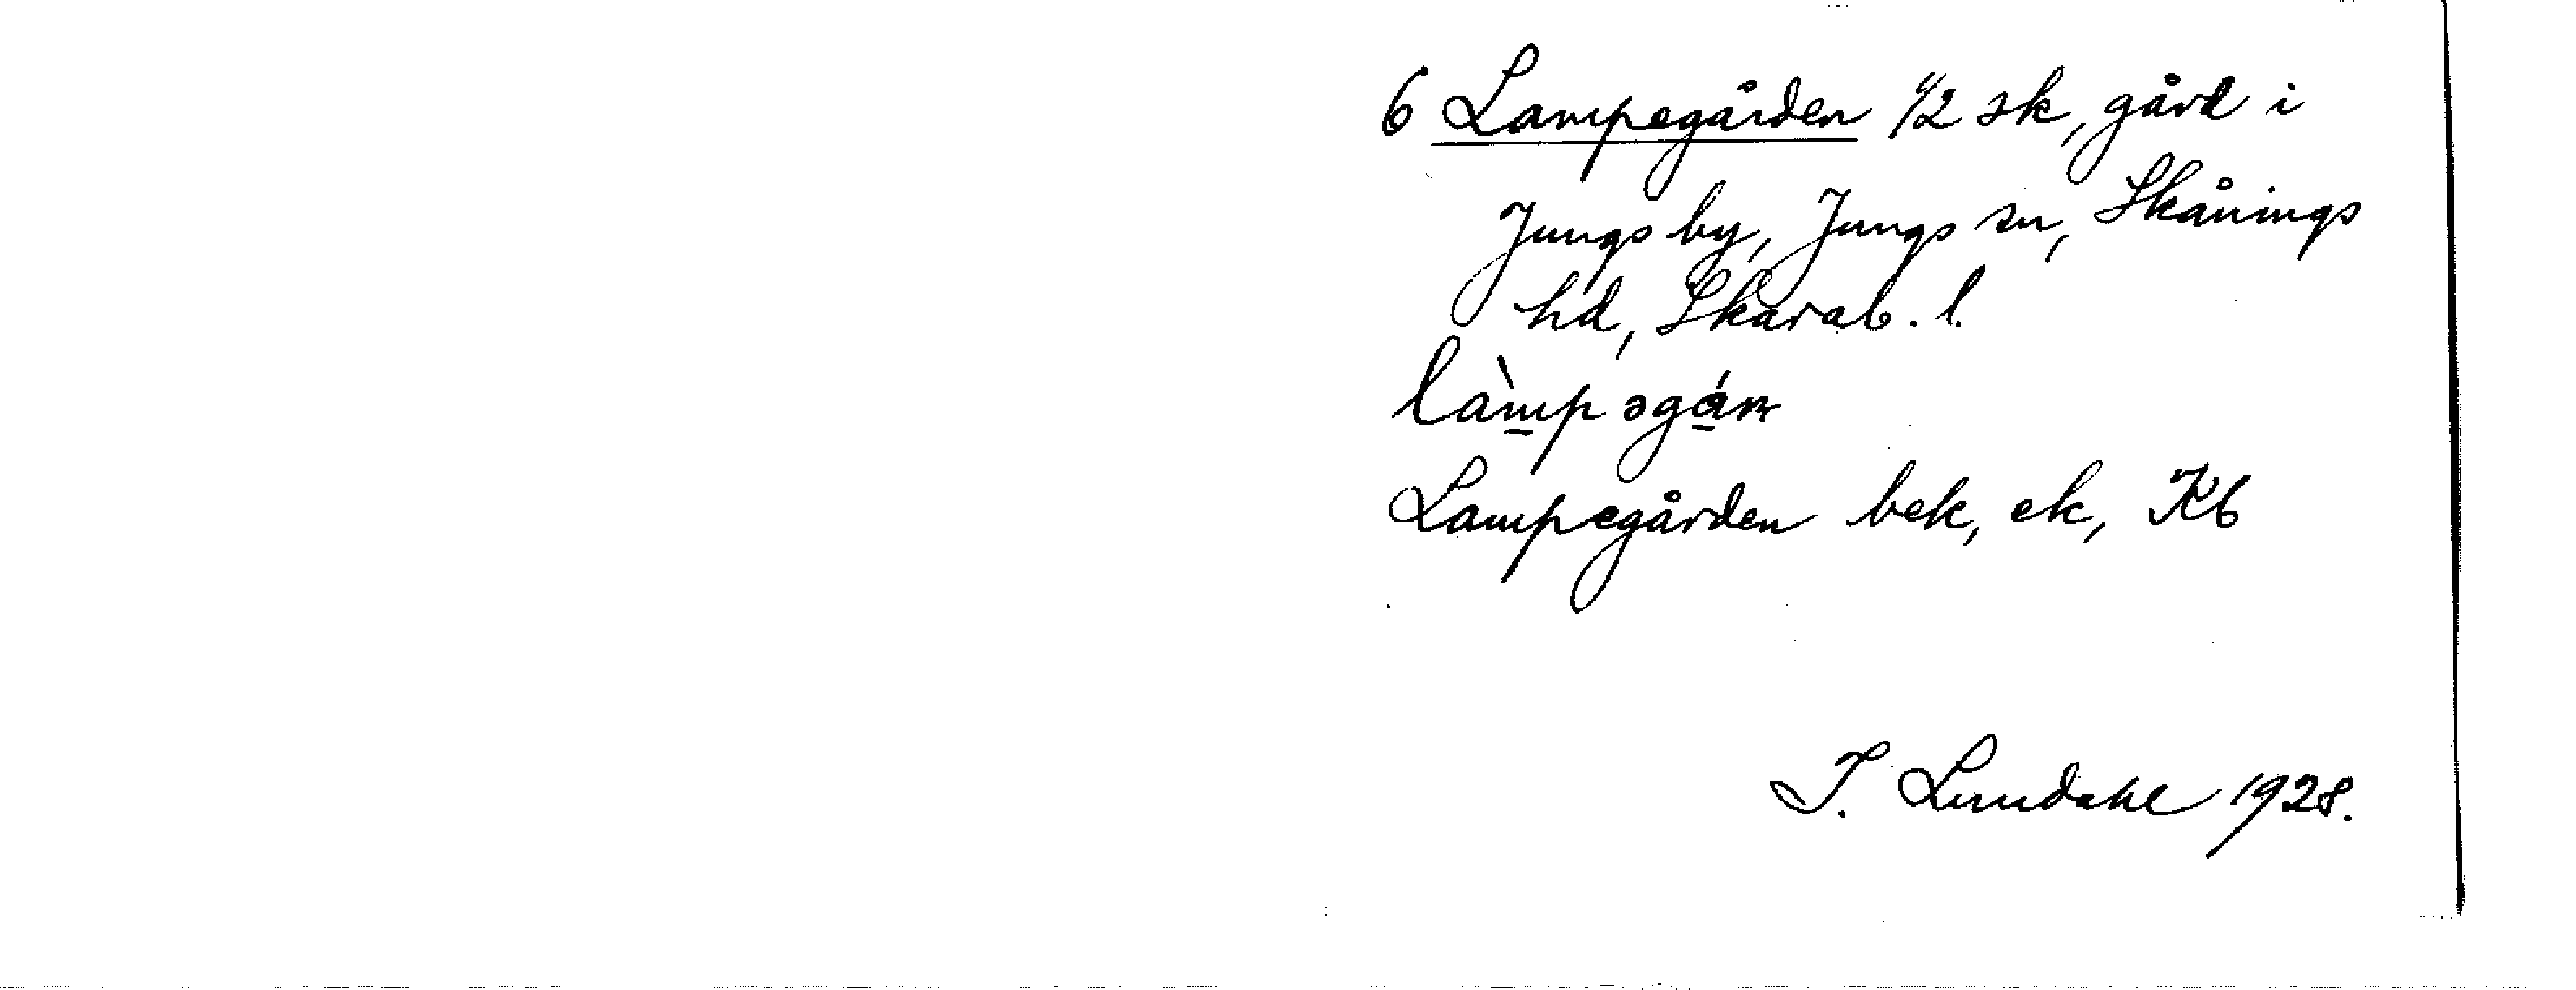 6 Lampegården 1/2 sk, gård i
Jungs by, Jungs sn, Skånings
hd, Skarab. l.
Lampegården bek, ek, Kb
I. Lundahl 1928.